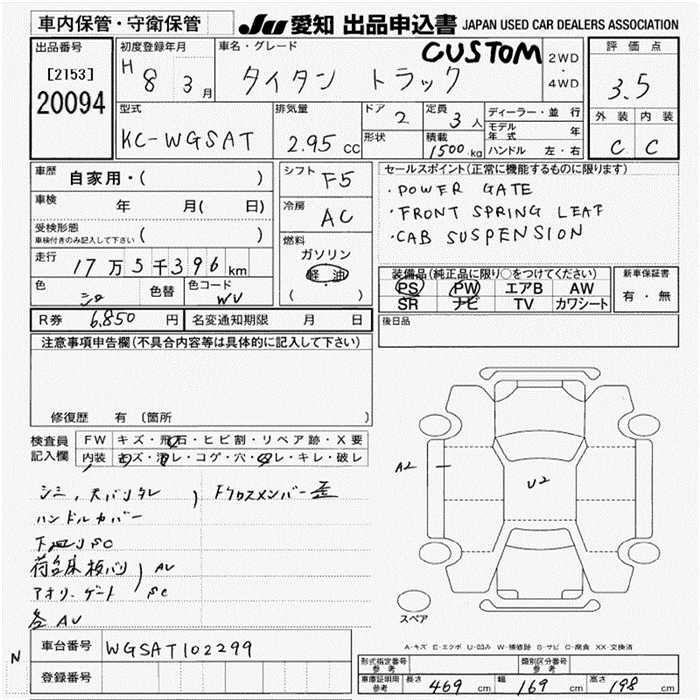 車内保管・守衛保管
JU 愛知 出品申込書 JAPAN USED CAR DEALERS ASSOCIATION
出品番号
[2153]
20094
初度登録年月
H 8 3月
車名・グレード
タイタン トラック CUSTOM
2WD
・
4WD
評価点
3.5
外装 内装
C C
型式
KC-WGSAT
排気量
2.95 cc
ドア 2
形状
定員 3人
積載 1500kg
ディーラー・並行
モデル年式 年
ハンドル 左・右
車歴
自家用・( )
車検 年 月( 日)
受検形態
車検付きのみ記入して下さい ( )
走行
17万5千396km
色 シロ 色替 色コード WV
シフト F5
冷房 AC
燃料
ガソリン
軽・油
( )
セールスポイント(正常に機能するものに限ります)
・POWER GATE
・FRONT SPRING LEAF
・CAB SUSPENSION
装備品(純正品に限り○をつけてください)
PS PW エアB AW
SR ナビ TV カワシート
新車保証書
有・無
後日品
R券 6,850 円 名変通知期限 月 日
注意事項申告欄(不具合内容等は具体的に記入して下さい)
修復歴 有 〔箇所 〕
検査員記入欄
FW キズ・飛石・ヒビ割・リペア跡・X要
内装 キズ・汚レ・コゲ・穴・スレ・キレ・破レ
シミ、天バリタレ
Fクロスメンバー歪
ハンドルカバー
下廻りSC
荷台床板バリ AU
アオリ、ゲート SC
各AU
A2
U2
スペア
A-キズ E-エクボ U-凹み W-補修跡 S-サビ C-腐食 XX-交換済
N
車台番号 WGSAT102299
登録番号
形式指定番号 参考 類別区分番号 参考
車庫証明用 参考 長さ 469 cm 幅 169 cm 高さ 198 cm